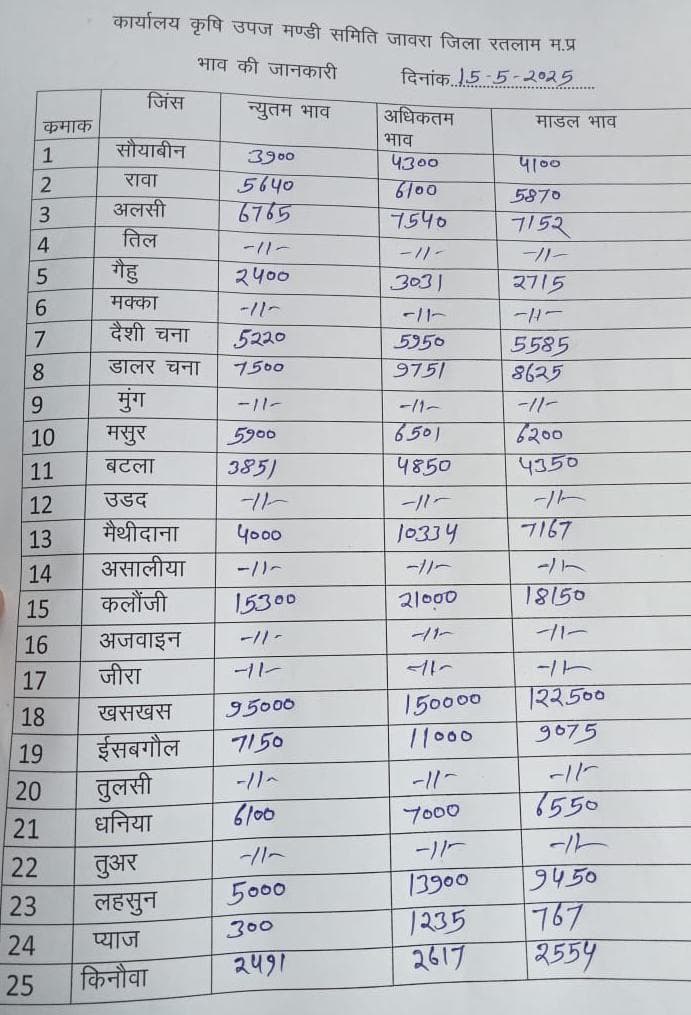 कार्यालय कृषि उपज मण्डी समिति जावरा जिला रतलाम म.प्र
भाव की जानकारी दिनांक 15-5-2025
कमाक जिंस न्युतम भाव अधिकतम भाव माडल भाव
1 सौयाबीन 3900 4300 4100
2 रावा 5640 6100 5870
3 अलसी 6765 7540 7152
4 तिल -11- -11- -11-
5 गैहु 2400 3031 2715
6 मक्का -11- -11- -11-
7 दैशी चना 5220 5950 5585
8 डालर चना 7500 9751 8625
9 मुंग -11- -11- -11-
10 मसुर 5900 6501 6200
11 बटला 3851 4850 4350
12 उडद -11- -11- -11-
13 मैथीदाना 4000 10334 7167
14 असालीया -11- -11- -11-
15 कलौंजी 15300 21000 18150
16 अजवाइन -11- -11- -11-
17 जीरा -11- -11- -11-
18 खसखस 95000 150000 122500
19 ईसबगौल 7150 11000 9075
20 तुलसी -11- -11- -11-
21 धनिया 6100 7000 6550
22 तुअर -11- -11- -11-
23 लहसुन 5000 13900 9450
24 प्याज 300 1235 767
25 किनौवा 2491 2617 2554